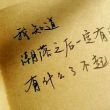 我知道
潮落之后一定有
有什么了不起